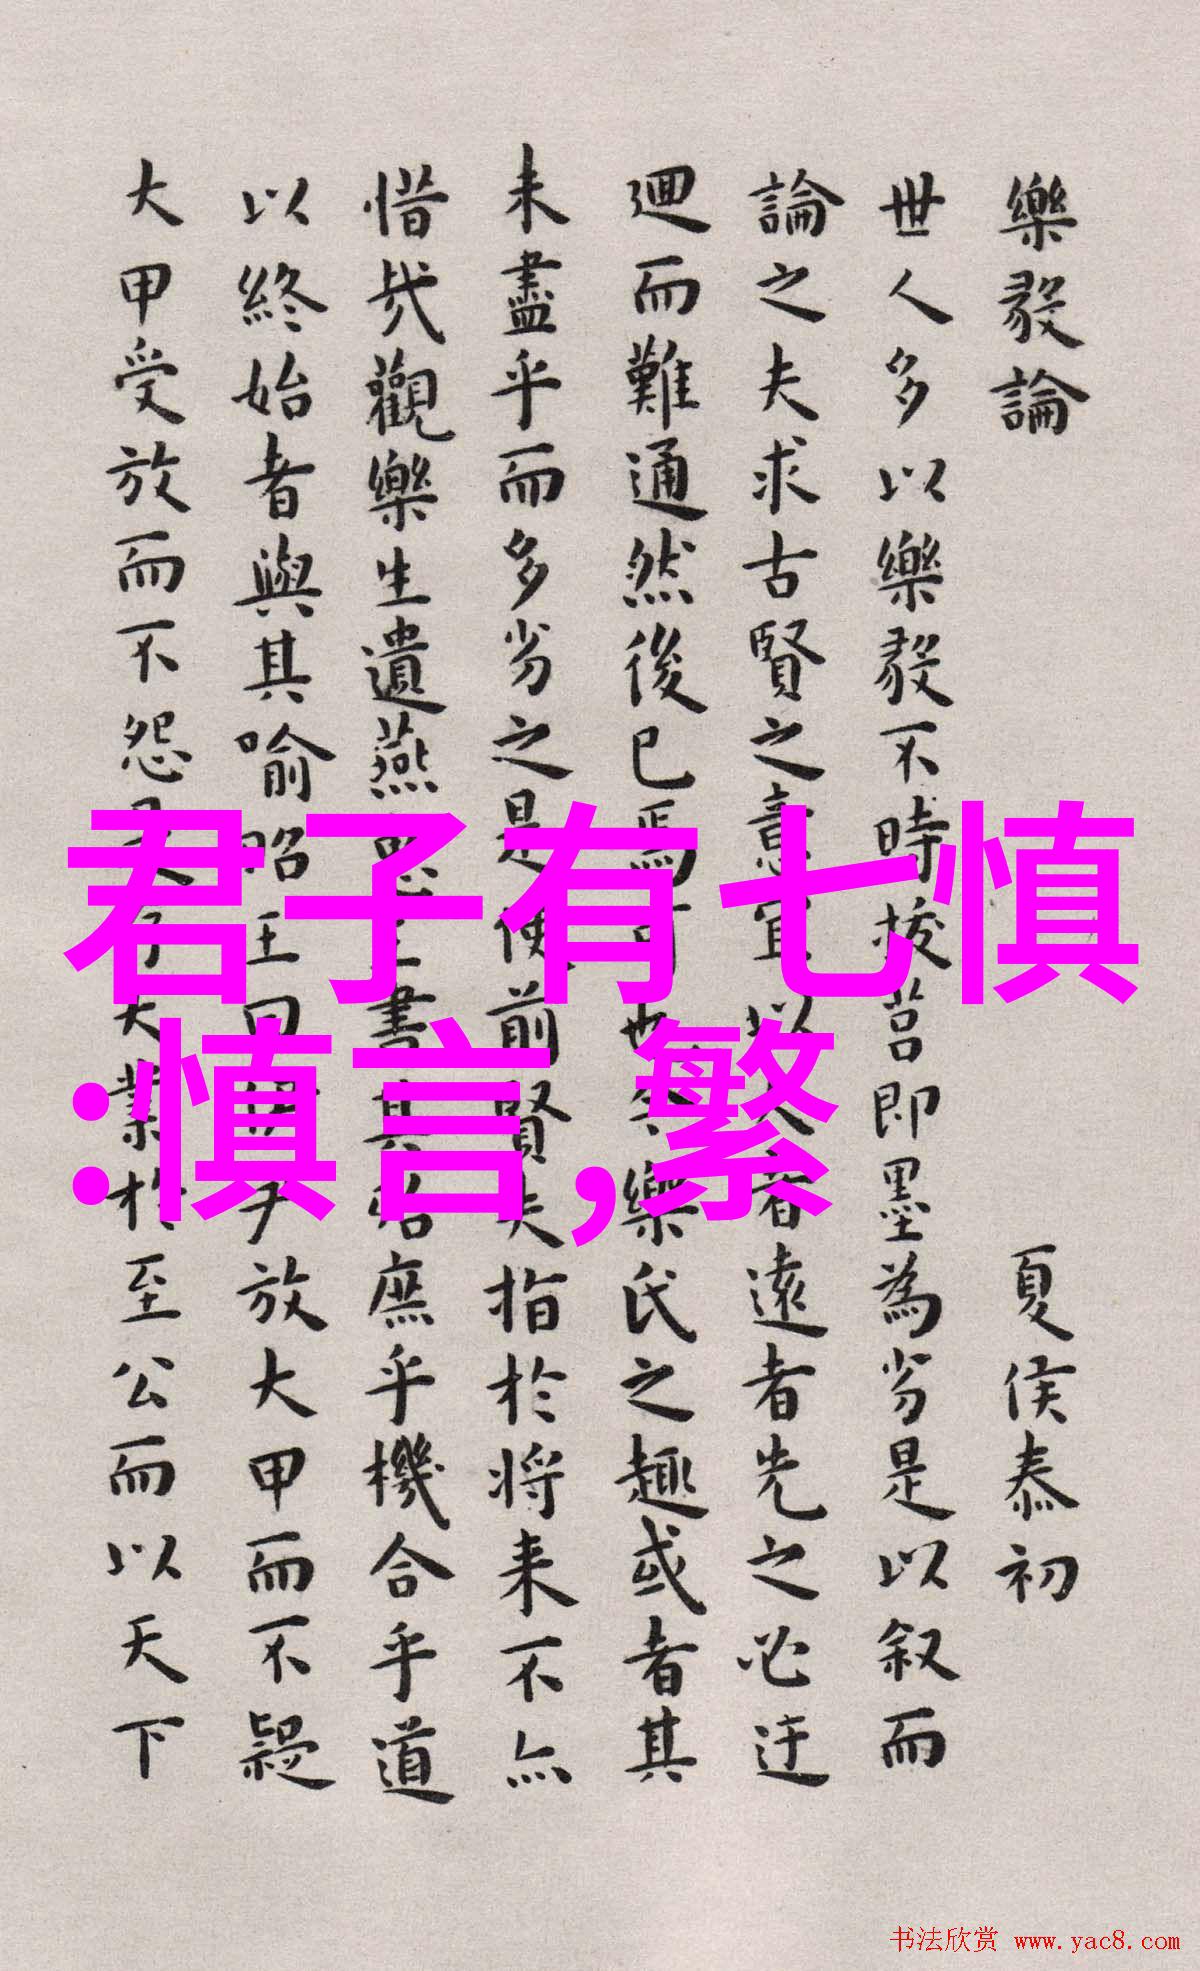 樂毅論 夏侯泰初
世人多以樂毅不時拔莒即墨為劣是以叙而
論之夫求古賢之意宜以者遠者先之必迂
迴而難通然後已焉也今樂氏之趣或者其
未盡乎而多劣之是使前賢失指於将来不亦
惜哉觀樂生遺燕王書其庶乎機合乎道
以終始者與其喻昭王曰尹放大甲而不疑
大甲受放而不怨大業於至公而以天下
君子有七慎
:慎言,繁
书法欣赏 www.yac8.com